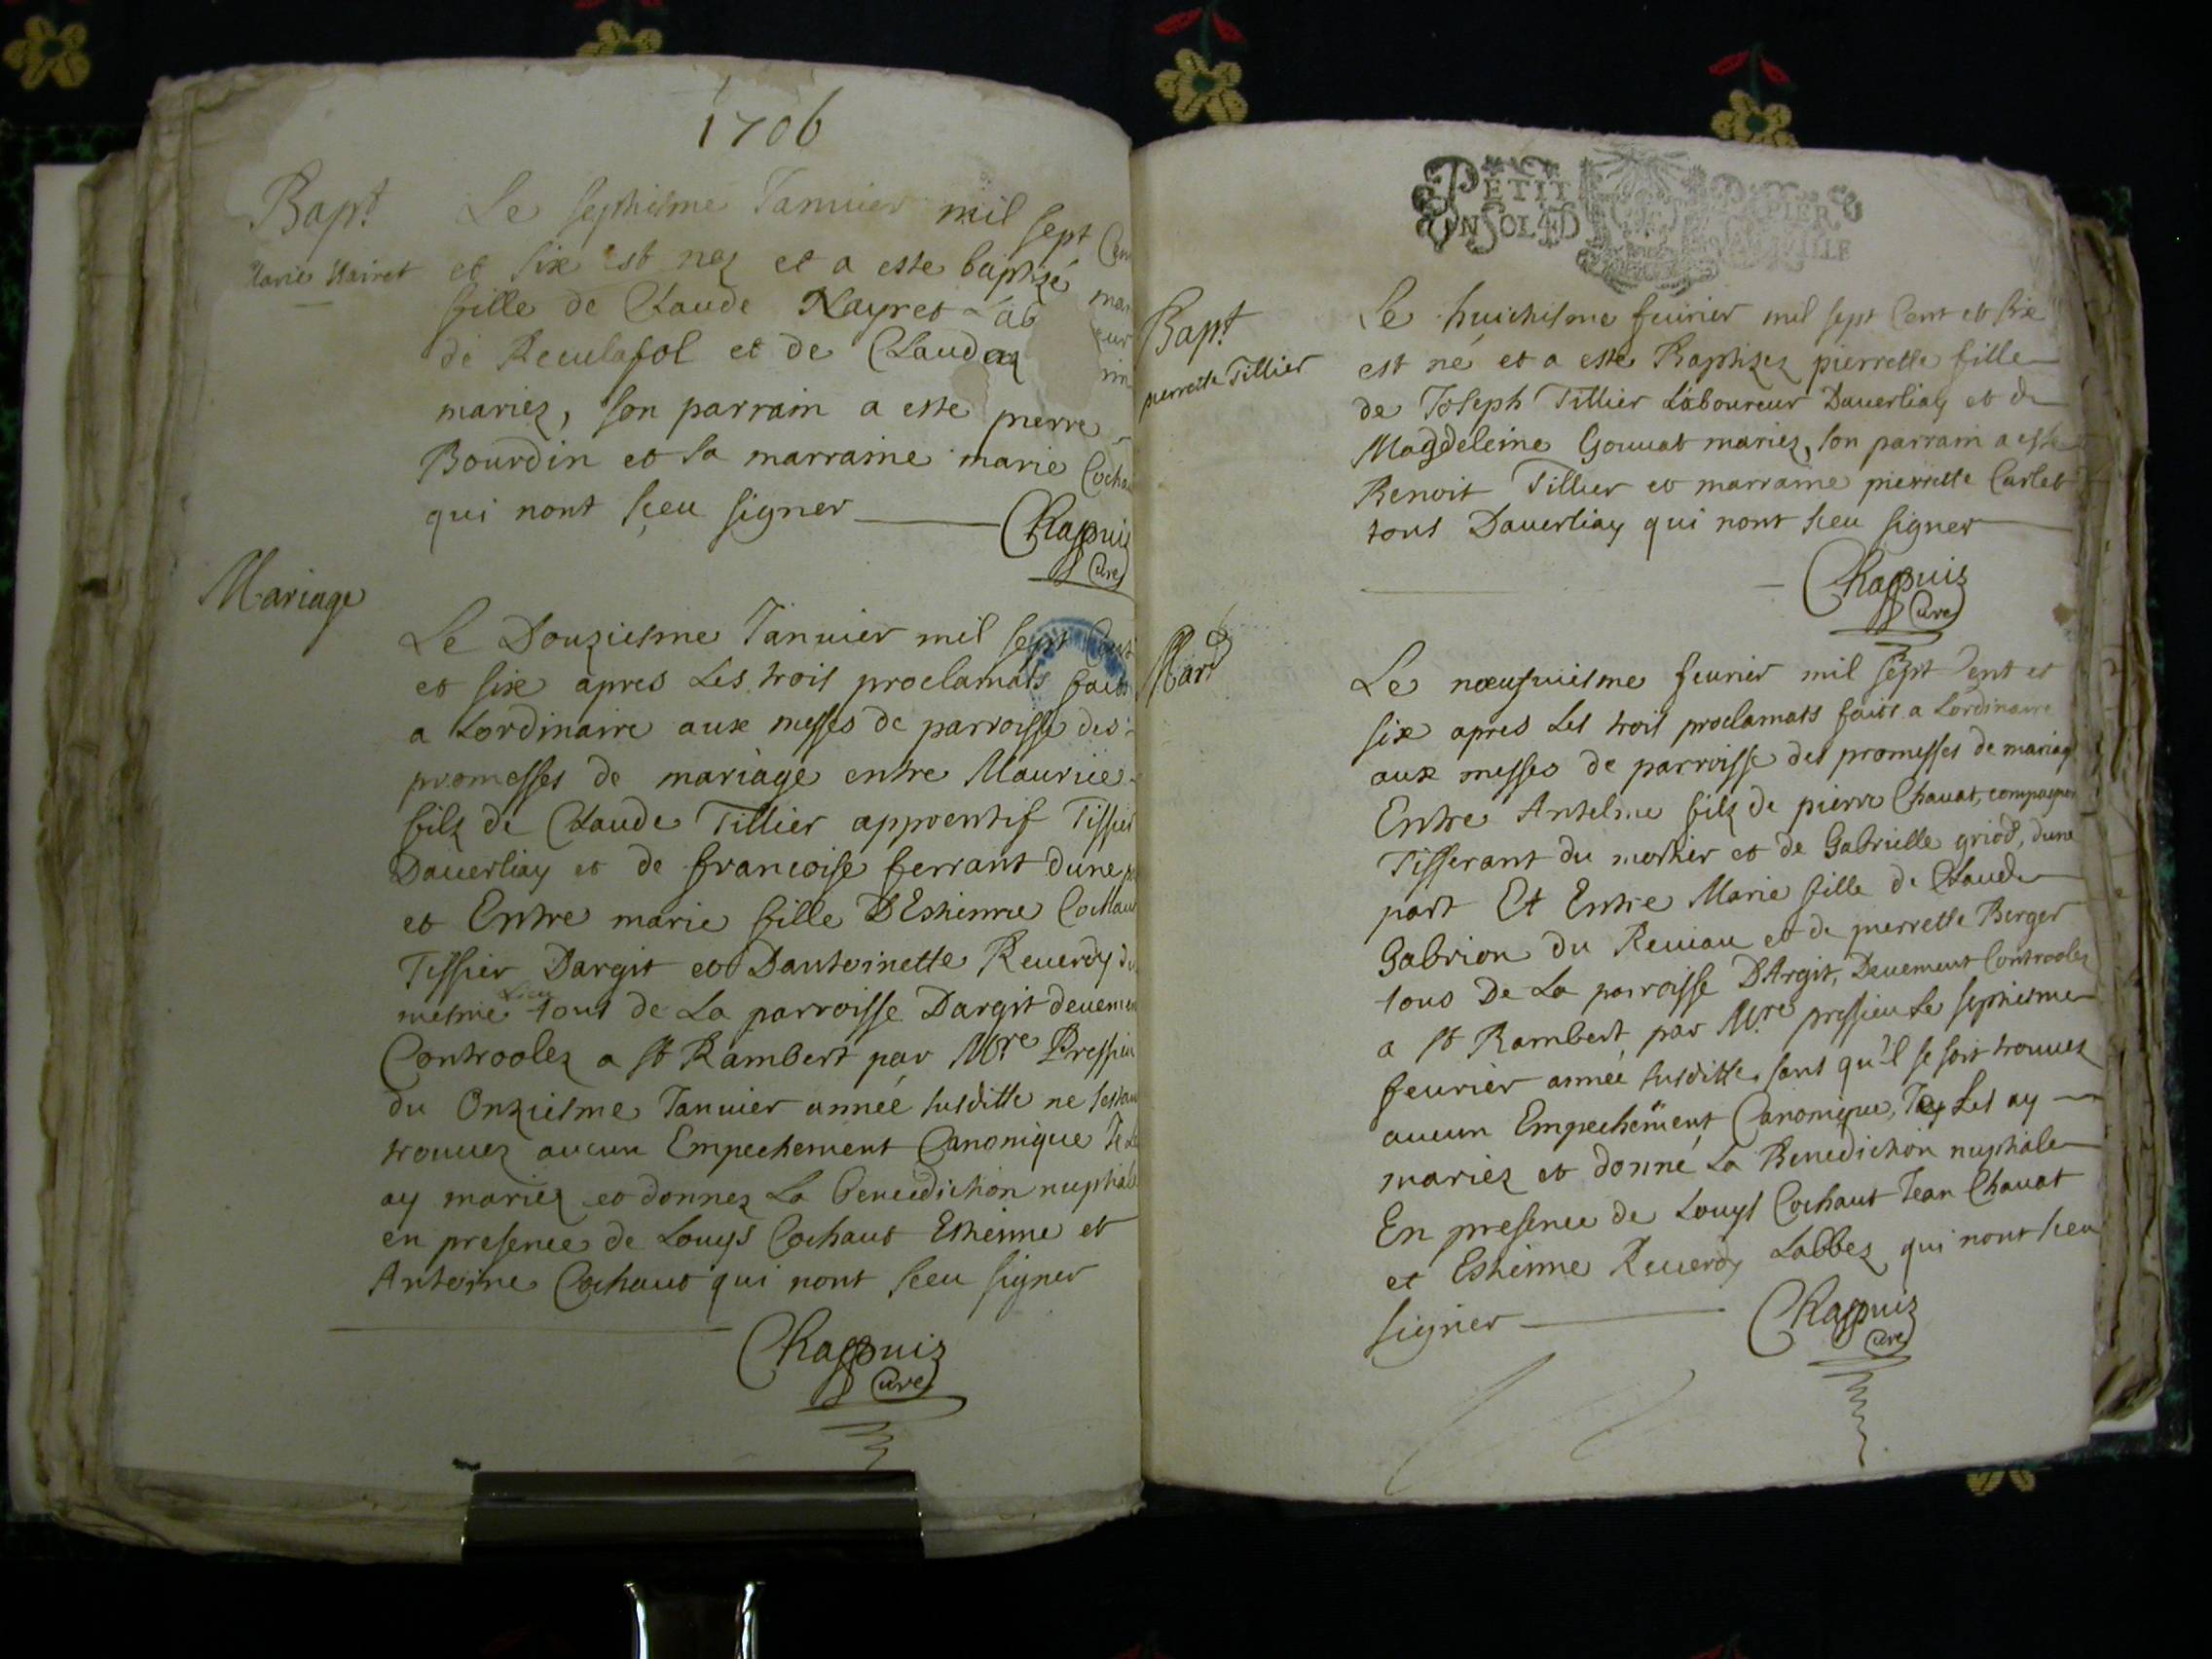 1706
Bapt
Marie Nairet
Le septiesme Januier mil sept Cen
et six est nez et a este baptisé mar
fille de Claude Nayret Lab eur
de Reculafol et de Clauda
mariez, son parrain a este pierre
Bourdin et sa marraine marie Cochau
qui nont sceu signer
Chappuiz
Curé
Mariage
Le Douziesme Januier mil sept Cent
et six apres Les trois proclamats faits
a Lordinaire aux messes de parroisse des
promesses de mariage entre Maurice
filz de Claude Tillier apprentif Tissier
Dauerliay et de francoise ferrant dune
et Entre marie fille D'Estienne Cochau
Tissier Dargit et Dantoinette Reuerdy du
mesme Lieu tous de La parroisse Dargit deuemen
Controolez a St Rambert par Mre Pressieu
du Onziesme Januier année susditte ne sestan
trouuez aucun Empechement Canonique Je Le
ay mariez et donnez La benediction nuptiale
en presence de Louys Cochaut Estienne et
Antoine Cochaut qui nont sceu signer
Chappuiz
Curé
PETIT PAPIER
UN SOL 4 D
Bapt
pierrette Tillier
Le huictiesme feurier mil sept Cent et six
est né et a este Baptizez pierrette fille
de Joseph Tillier Laboureur Dauerliay et de
Magdeleine Gouuat mariez, son parrain a este
Benoit Tillier et marraine pierrette Carlet
tous Dauerliay qui nont sceu signer
Chappuiz
Curé
Mard
Le noeufuiesme feurier mil sept Cent et
six apres Les trois proclamats faits a Lordinaire
aux messes de parroisse des promesses de mariage
Entre Antelme filz de pierre Chauat, compagnon
Tisserant du mortier et de Gabrielle griod, dune
part Et Entre Marie fille de Claude
Gabrion du Reuiau et de pierrette Berger
tous De La parroisse D'Argit, Deuement Controolez
a St Rambert par Mre pressieu Le septiesme
feurier année susditte, sans qu'il se soit trouuez
aucun Empechement Canonique, Jay Les ay
mariez et donné La Benediction nuptiale
En presence de Louys Cochaut Jean Chauat
et Estienne Reuerdy Labbez qui nont sceu
signer
Chappuiz
Curé